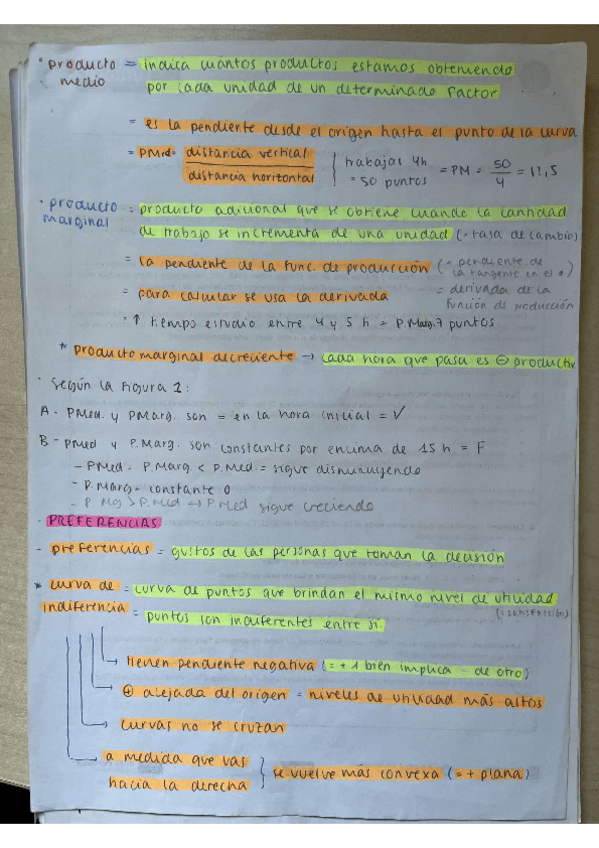 · producto = indica cuántos productos estamos obteniendo
medio por cada unidad de un determinado factor
= es la pendiente desde el origen hasta el punto de la curva
= PMed = distancia vertical / distancia horizontal } trabajas 4h = 50 puntos = PM = 50/4 = 12,5
· producto marginal = producto adicional que se obtiene cuando la cantidad
de trabajo se incrementa de una unidad (= tasa de cambio)
= la pendiente de la func. de producción (= pendiente de la tangente en el •)
= para calcular se usa la derivada = derivada de la función de producción
= ↑ tiempo estudio entre 4 y 5 h = P.Marg. 7 puntos
* producto marginal decreciente → cada hora que pasa es ⊖ productiv
· Según la Figura 1:
A - PMed. y PMarg. son = en la hora inicial = V
B - PMed y P.Marg. son constantes por encima de 15 h = F
- PMed - P.Marg < P.Med = sigue disminuyendo
- P.Marg = constante 0
- P Mg > P.Med → P Med sigue creciendo
· PREFERENCIAS
- preferencias = gustos de las personas que toman la decisión
* curva de indiferencia = curva de puntos que brindan el mismo nivel de utilidad
(= satisfacción)
= puntos son indiferentes entre sí
→ tienen pendiente negativa (= + 1 bien implica - de otro)
→ ⊕ alejada del origen = niveles de utilidad más altos
→ curvas no se cruzan
→ a medida que vas hacia la derecha } se vuelve más convexa (= + plana)